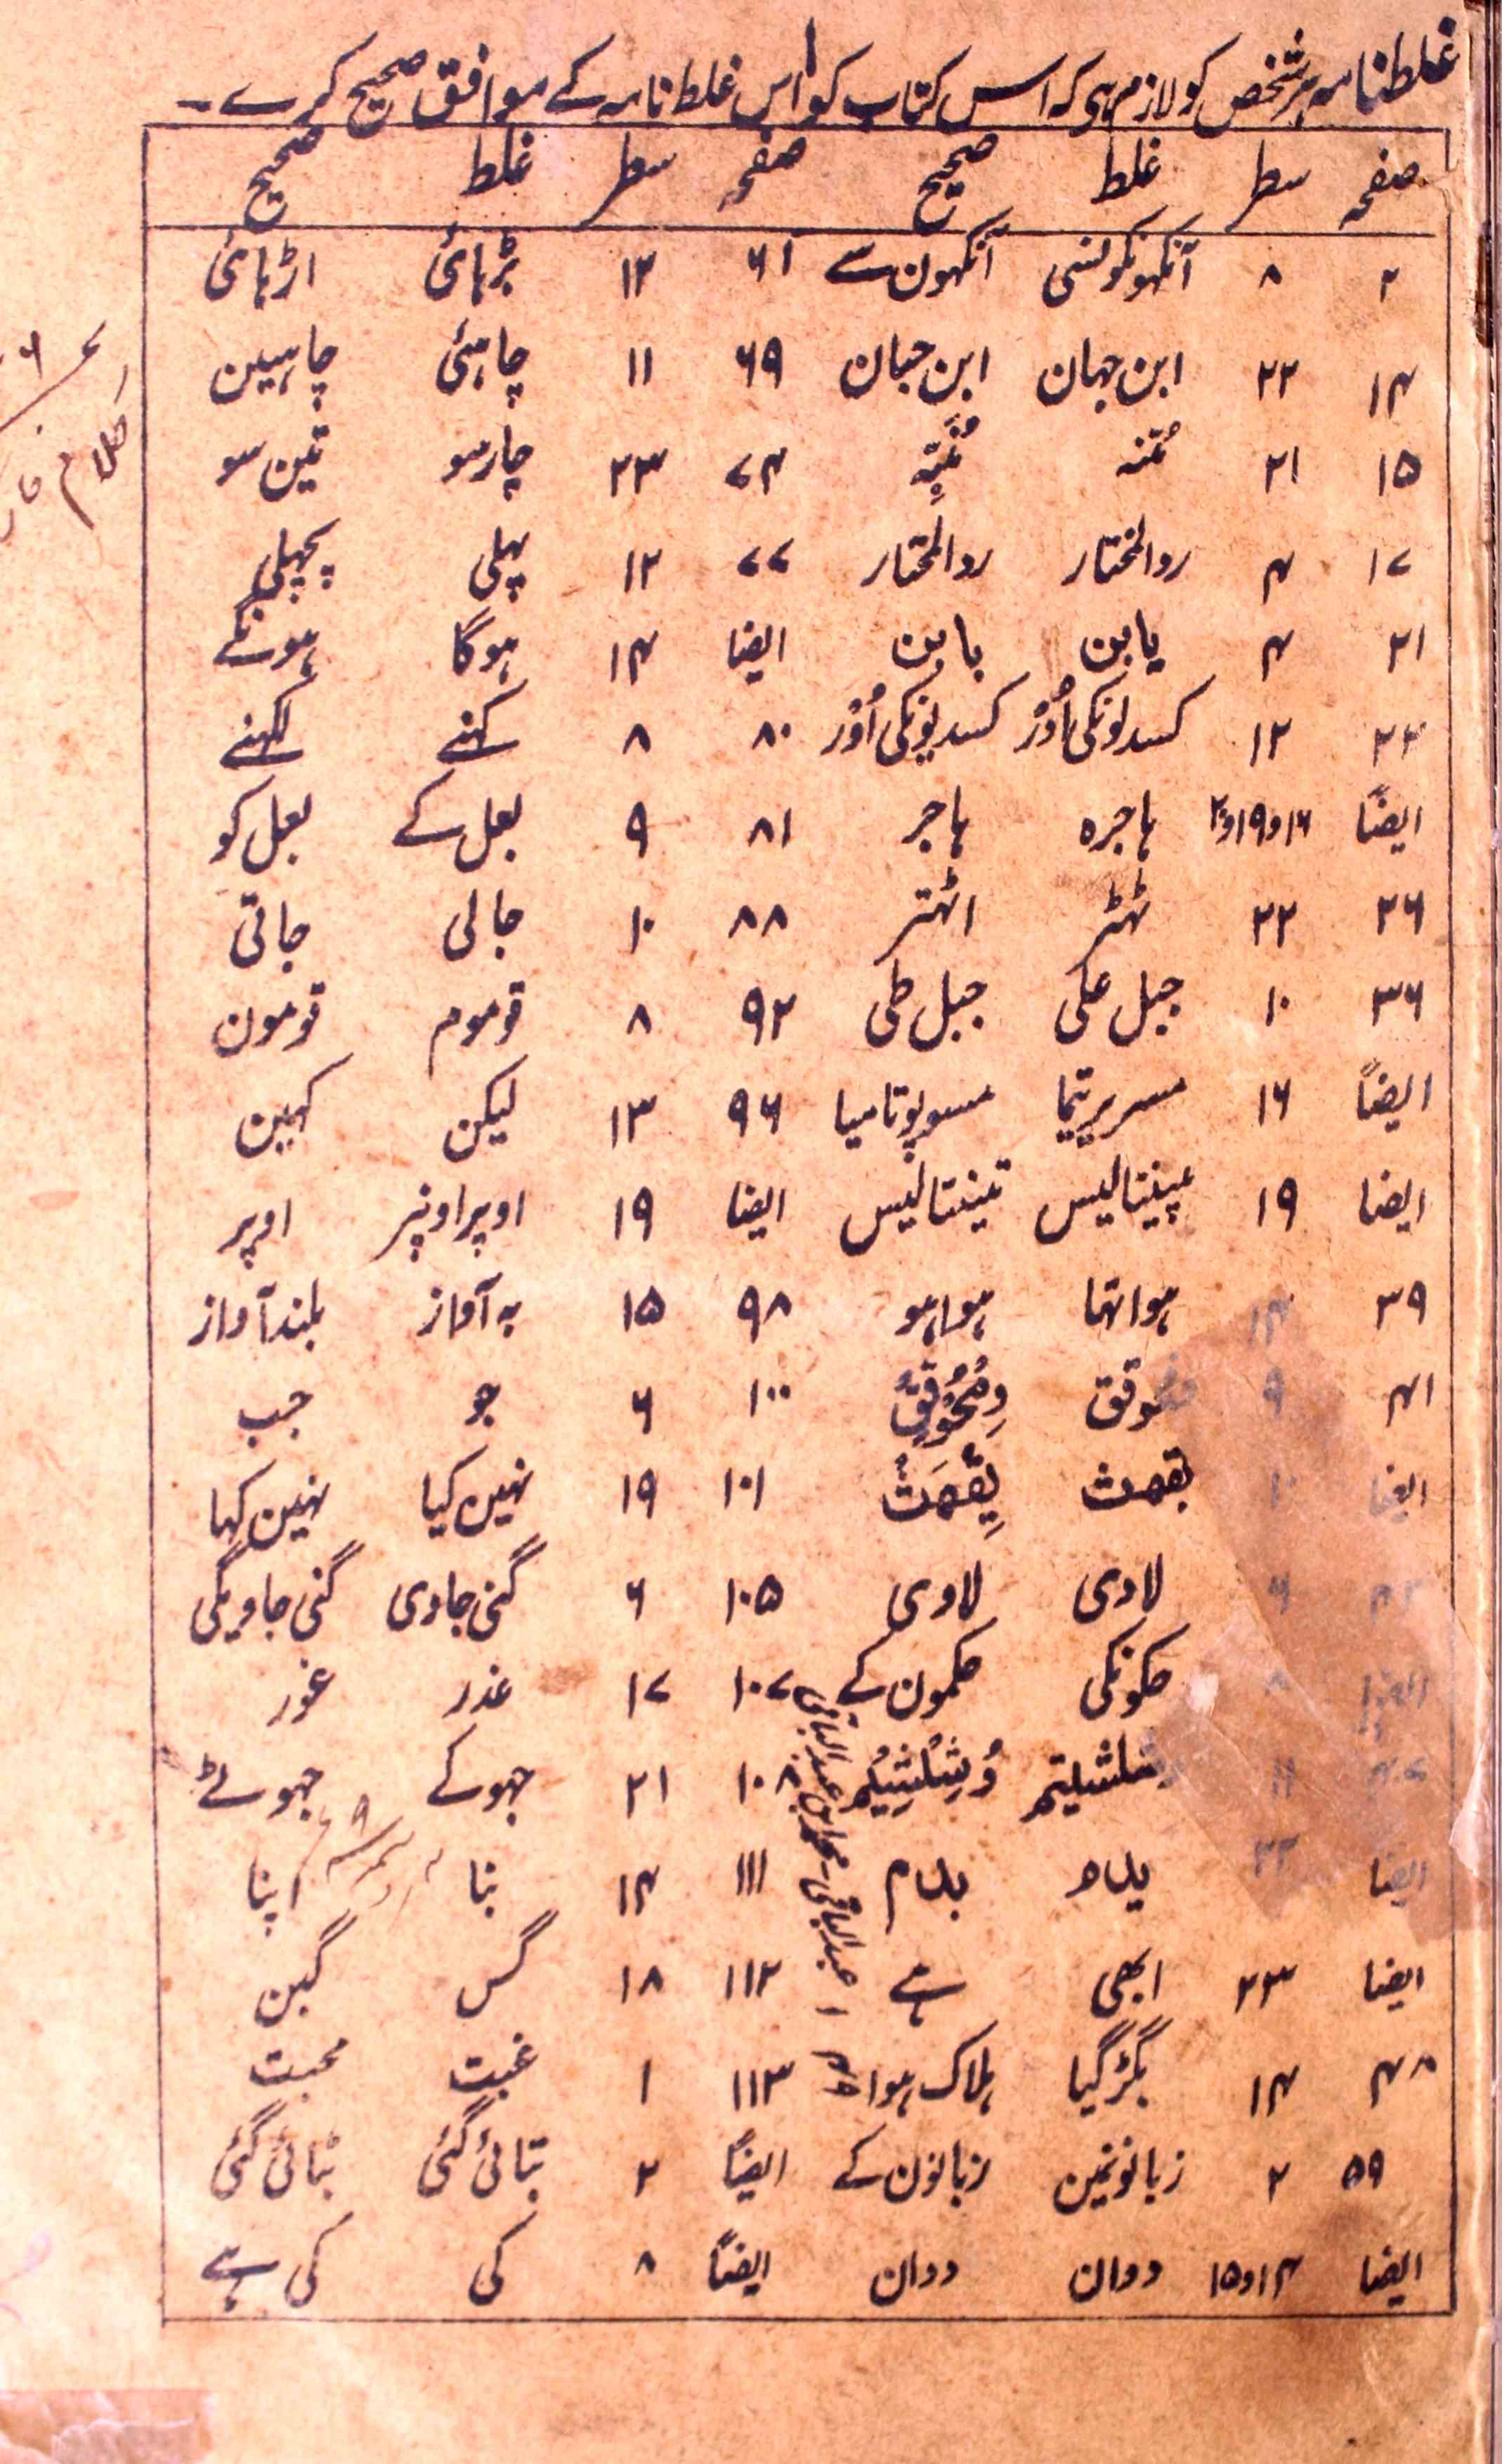 غلطنامہ ہر شخص کو لازم ہی کہ اس کتاب کو اس غلط نامہ کے موافق صحیح کرے۔
صفحہ سطر غلط صحیح صفحہ سطر غلط صحیح
۲ ۸ آنکہونکولنسی آنکہون سے ۶۱ ۱۲ بڑہائی اڑہائی
۱۴ ۲۲ ابن جہان ابن حبان ۶۹ ۱۱ چاہئی چاہیین
۱۵ ۲۱ ۷۴ ۲۳ چار سو تین سو
۱۷ ۴ ردالمختار ردالمحتار ۷۷ ۱۲ پہلی پچہلی
۲۱ ۴ یابن بابن ایضا ۱۴ ہوگا ہونگے
۲۲ ۱۲ کسدلونکی اُوْر کسدیونکی اُوْر ۸۰ ۸ کہنے لکہنے
ایضاً ۱۶و۱۹و۲۰ ہاجرہ ہاجر ۸۱ ۹ بعل کے بعل کو
۲۶ ۲۲ ٹہٹر اٹہتر ۸۸ ۱۰ جالی جاتی
۳۶ ۱۰ جبل عکی جبل طی ۹۲ ۸ قوموم قومون
ایضاً ۱۶ مسوپوتامیا ۹۶ ۱۳ لیکن کہین
ایضا ۱۹ پینتالیس تینتالیس ایضا ۱۹ اوپر اونپر اوپر
۳۹ ۱۴ ہواتہا ہوا ہو ۹۸ ۱۵ بہ آواز بلند آواز
۴۱ ۹ وِمُحُوقِقْ ۱۰۰ ۶ جو جب
ایضا ۱۰ بقھث یِقْھَتْ ۱۰۱ ۱۹ نہین کیا نہین کہا
۶ لادی لاوی ۱۰۵ ۶ گنی جادی گنی جاویگی
ایضا ۸ حکونکی حکمون کے ۱۰۷ ۱۷ عذر غور
۴۷ ۱۱ ۱۰۸ ۲۱ جہوکے جہوٹے
ایضا ۲۲ یلاہ بلام ۱۱۱ ۱۴ بنا اپنا
ایضا ۲۳ ابھی ہے ۱۱۲ ۱۸ گس گبن
۴۸ ۱۴ بگڑ گیا ہلاک ہوا ۱۱۳ ۱ غبت محبت
۵۹ ۲ زبانونمین زبانون کے ایضاً ۲ بتائی گئی بنائی گئی
ایضا ۱۴و۱۵ دوان ددان ایضاً ۸ کی کی ہے